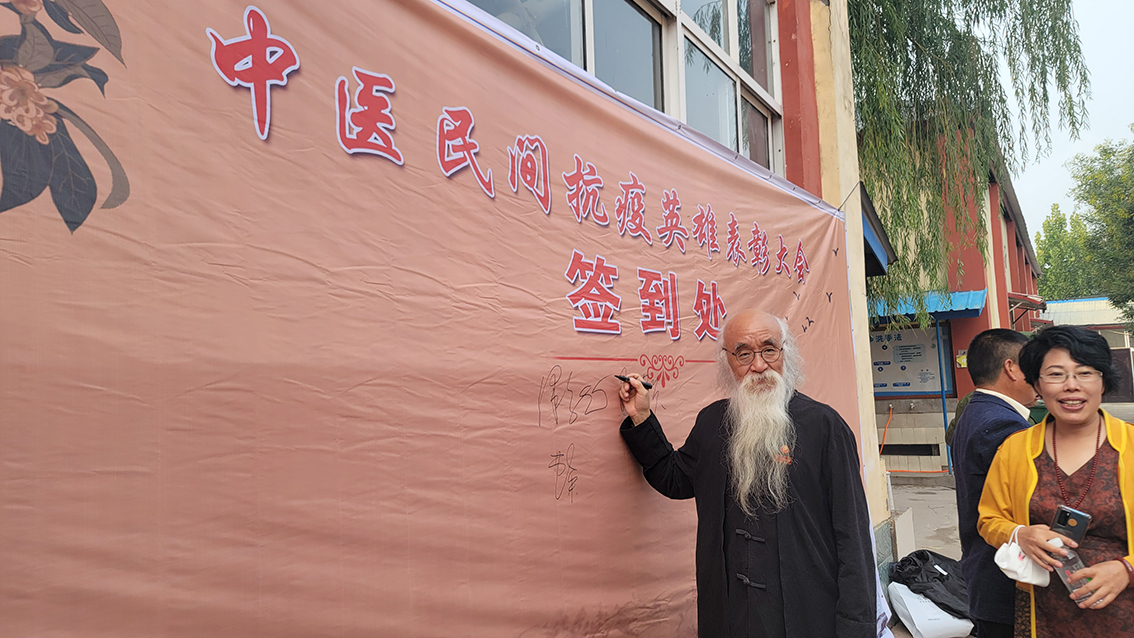 中医民间抗疫英雄表彰大会
签到处
洗手法